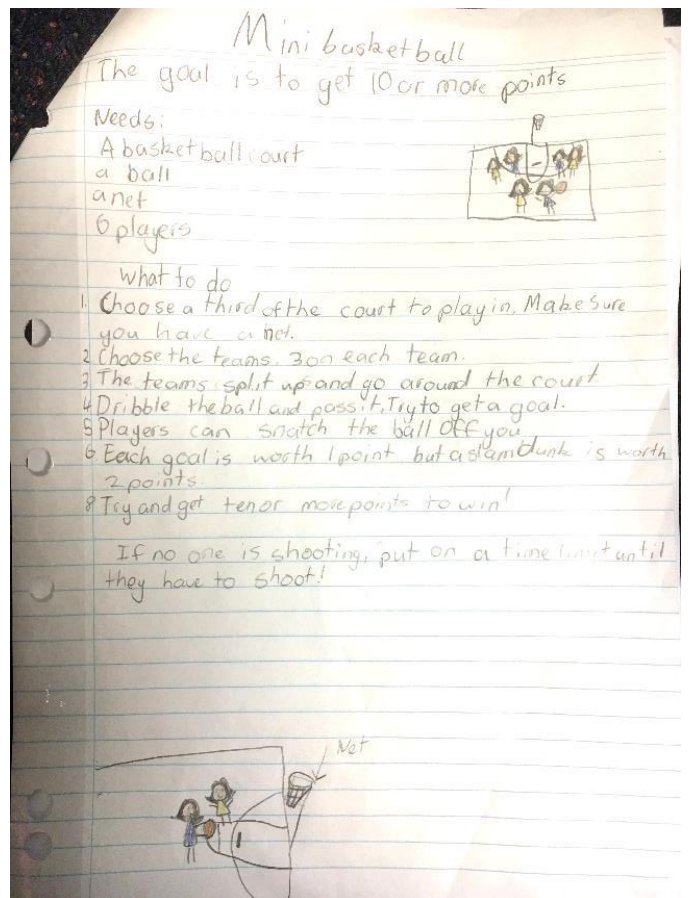 Mini basketball
The goal is to get 10 or more points
Needs:
A basketball court
a ball
a net
6 players
What to do
1. Choose a third of the court to play in. Make sure
you have a net.
2 Choose the teams. 3 on each team.
3 The teams split up and go around the court
4 Dribble the ball and pass it. Try to get a goal.
5 Players can snatch the ball off you
6 Each goal is worth 1 point but a slam dunk is worth
2 points.
8 Try and get ten or more points to win!
If no one is shooting, put on a time limit until
they have to shoot!
Net